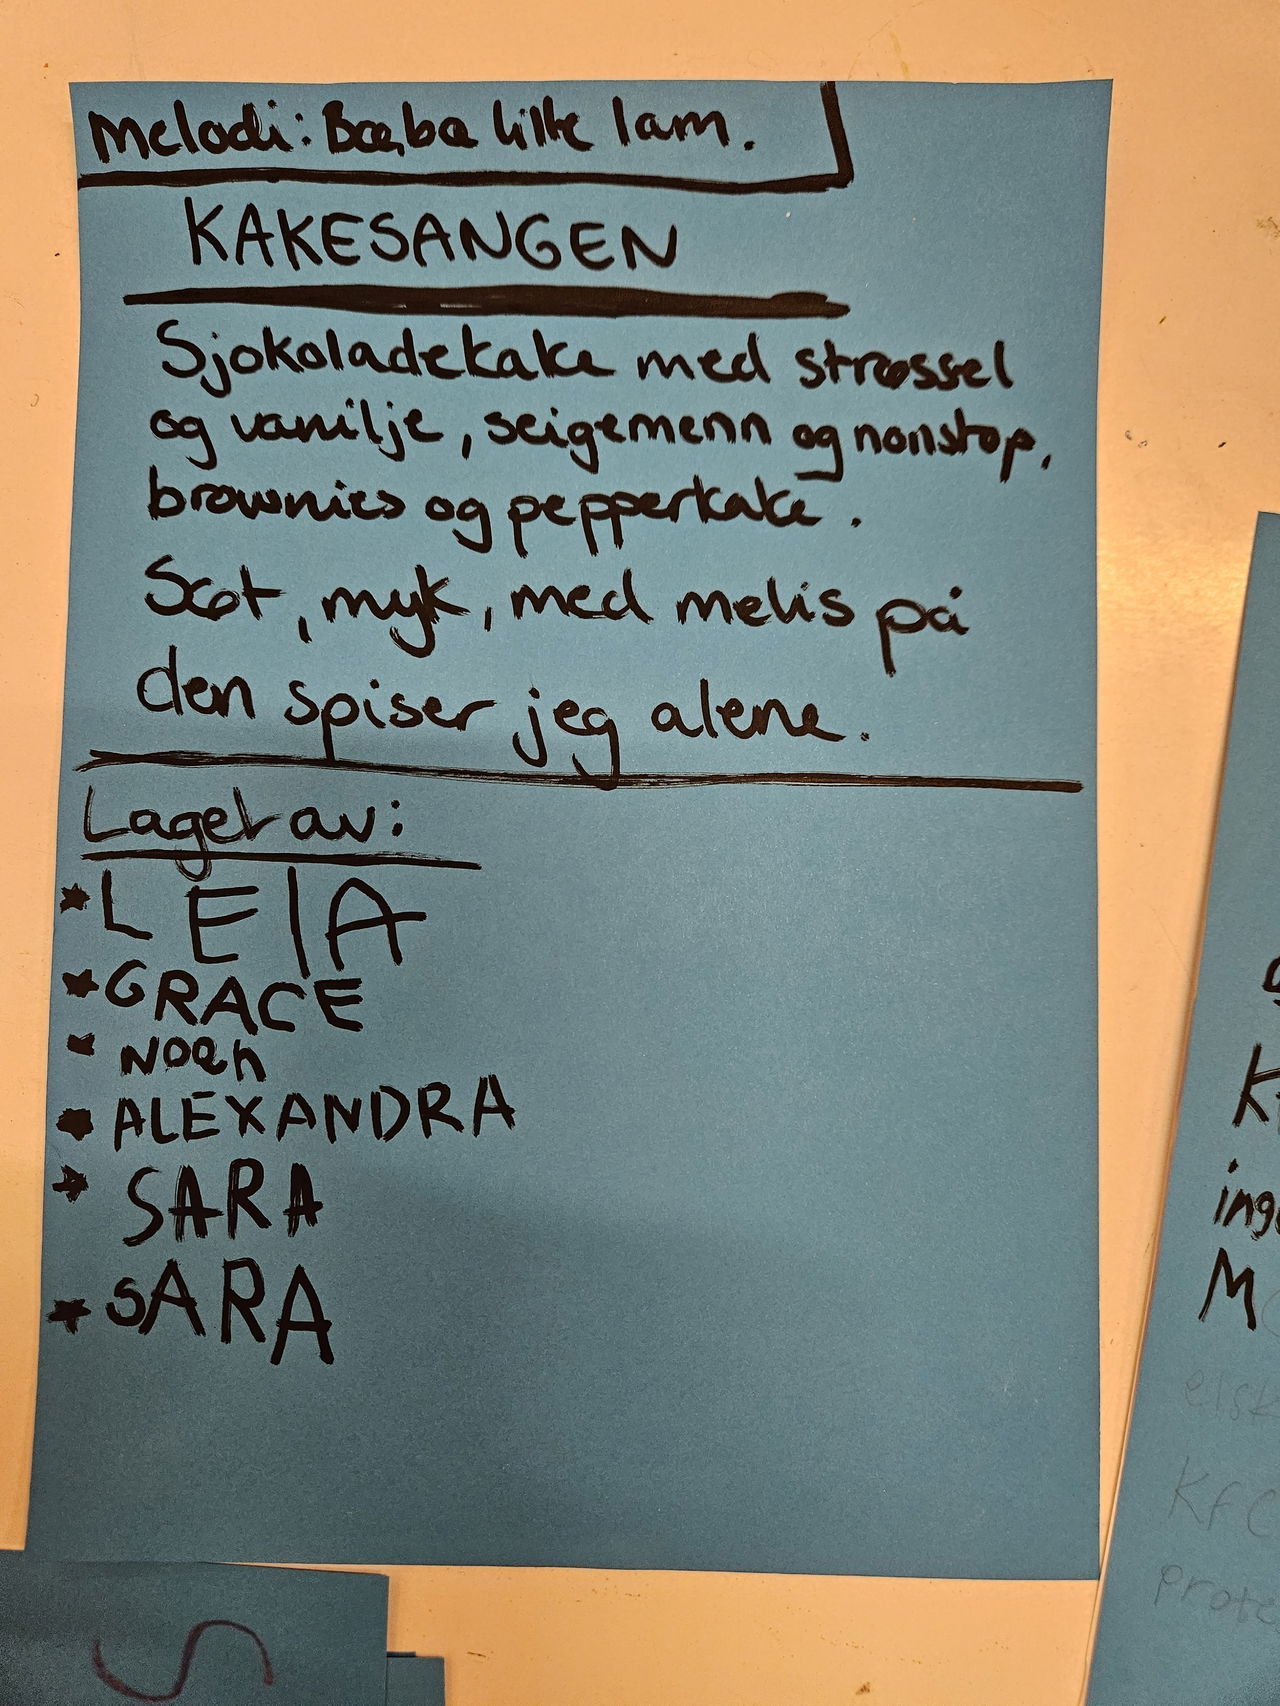 Melodi: Bæ, bæ lille lam.
KAKESANGEN
Sjokoladekake med strøssel
og vanilje, seigemenn og nonstop,
brownies og pepperkake.
Søt, myk, med melis på
den spiser jeg alene.
Laget av:
LEIA
GRACE
NOah
ALEXANDRA
SARA
SARA
K
ing
M
elsk
KFC
prote
S